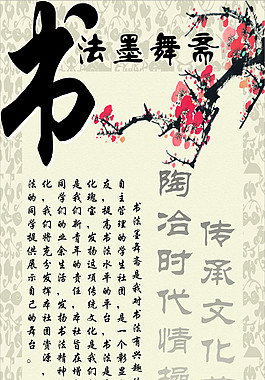 书法墨舞斋
传承文化
陶冶时代情操
书法墨舞斋是我对书法有兴趣
自主管理的学生社团，是一个彰显
友，提高书法水平的平台，书法是
化瑰宝，发扬這項传统文化是我们
是我们新青年的责任，本社旨在增
同学们的业余生活，发扬书法精神
化，我们将充分发挥本社团资源，
法的同学提供展示自己的舞台。